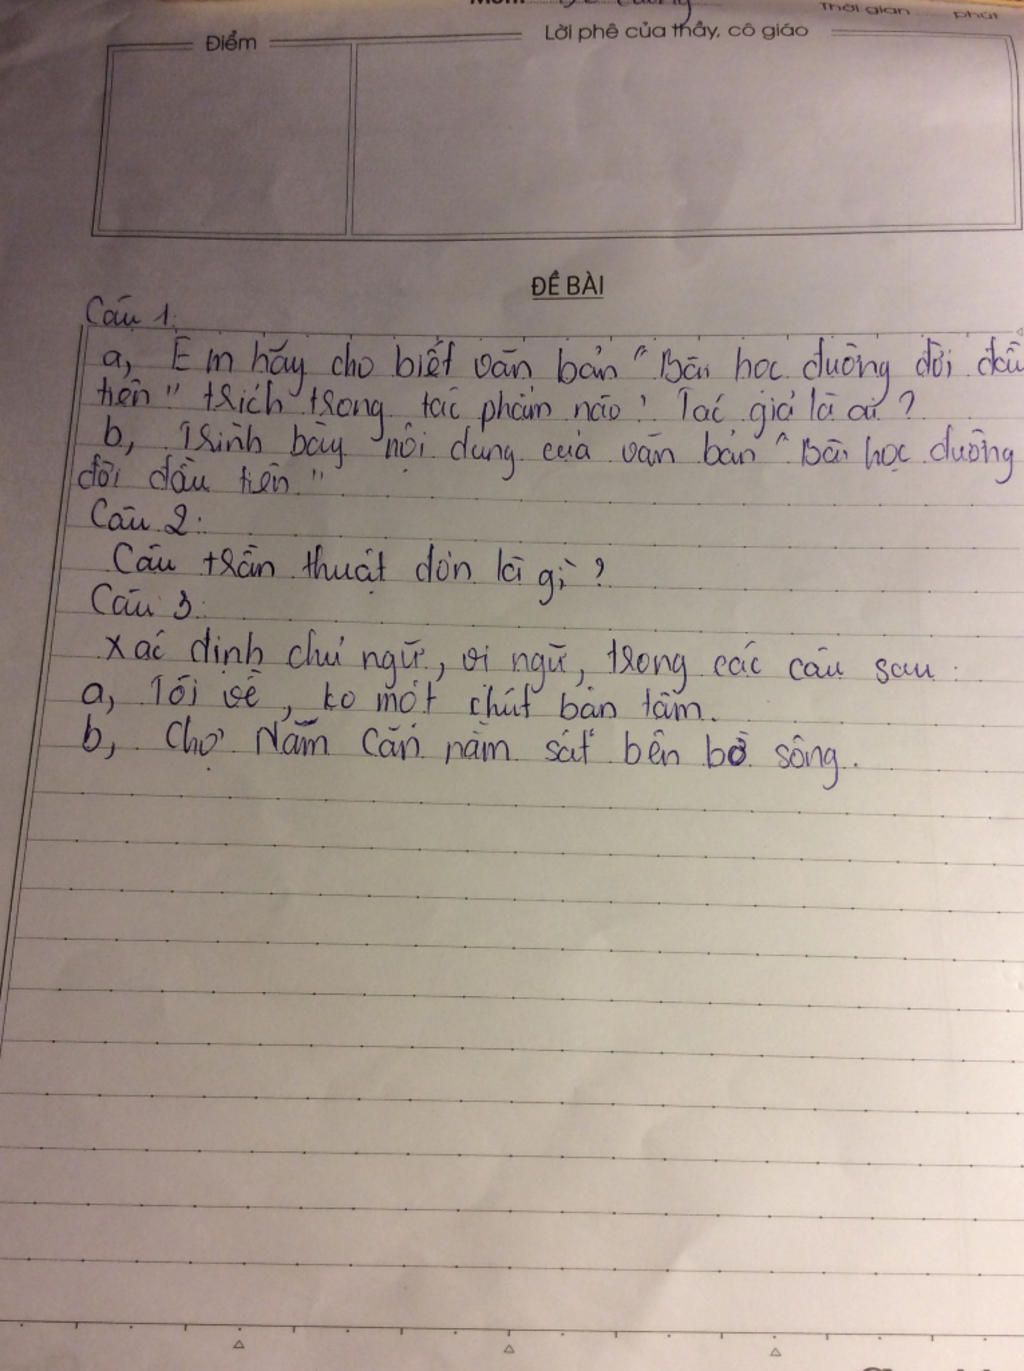 Thời gian phút
Điểm
Lời phê của thầy, cô giáo
ĐỀ BÀI
Câu 1:
a, Em hãy cho biết văn bản "Bài học đường đời đầu
tiên" trích trong tác phẩm nào? Tác giả là ai?
b, Trình bày nội dung của văn bản "Bài học đường
đời đầu tiên"
Câu 2:
Câu trần thuật đơn là gì?
Câu 3:
Xác định chủ ngữ, vị ngữ, trong các câu sau:
a, Tôi về, ko một chút bận tâm.
b, Chợ Năm Căn nằm sát bên bờ sông.